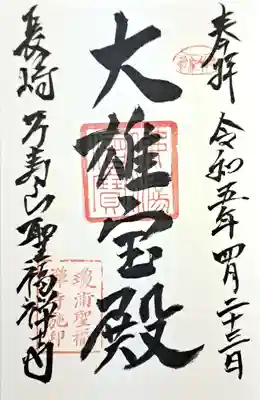 奉拝
令和五年四月二十三日
大雄宝殿
長崎
万寿山聖福禅寺
瓊浦聖福
禅寺施印